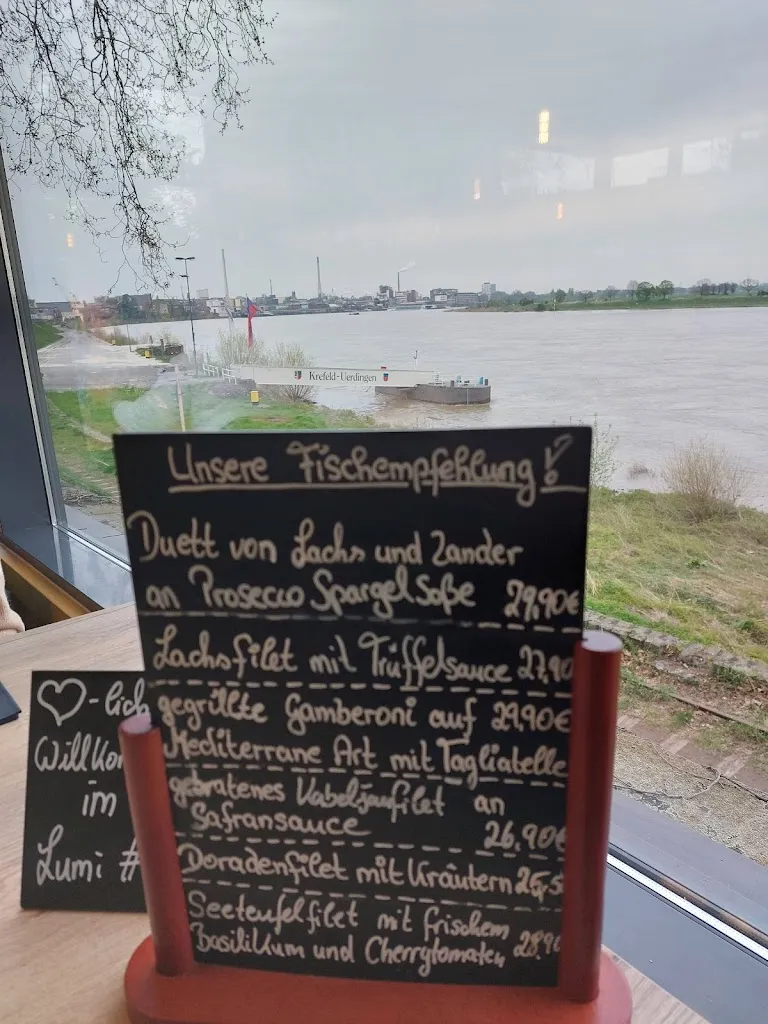 Krefeld-Uerdingen
Unsere Fischempfehlung!
Duett von Lachs und Zander
an Prosecco Spargel Soße 29,90€
Lachsfilet mit Trüffelsauce 27,90
gegrillte Gamberoni auf 29,90€
Mediterrane Art mit Tagliatelle
gebratenes Kabeljaufilet an
Safransauce 26,90€
Doradenfilet mit Kräutern 26,5
Seeteufelfilet mit frischem
Basilikum und Cherrytomaten 28,90
♡-lich
Willkom
im
Lumi #